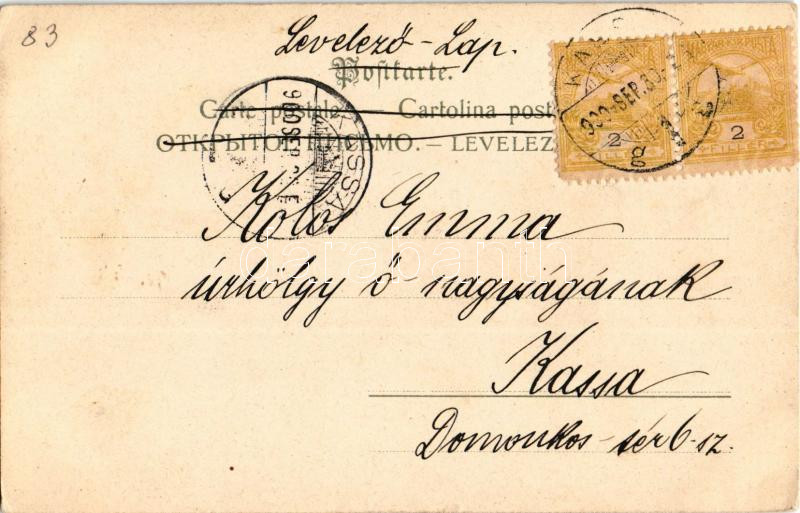 83
Levelező-Lap.
Postkarte.
Carte postale. — Cartolina post
ОТКРЫТОЕ ПИСЬМО. — LEVELEZ
MAGYAR KIR. POSTA
2 2
FILLÉR FILLÉR
900 SEP.
g
KASSA
Kolos Emma
úrhölgy ő nagyságának
Kassa
Domonkos-tér 6-sz.
darabanth